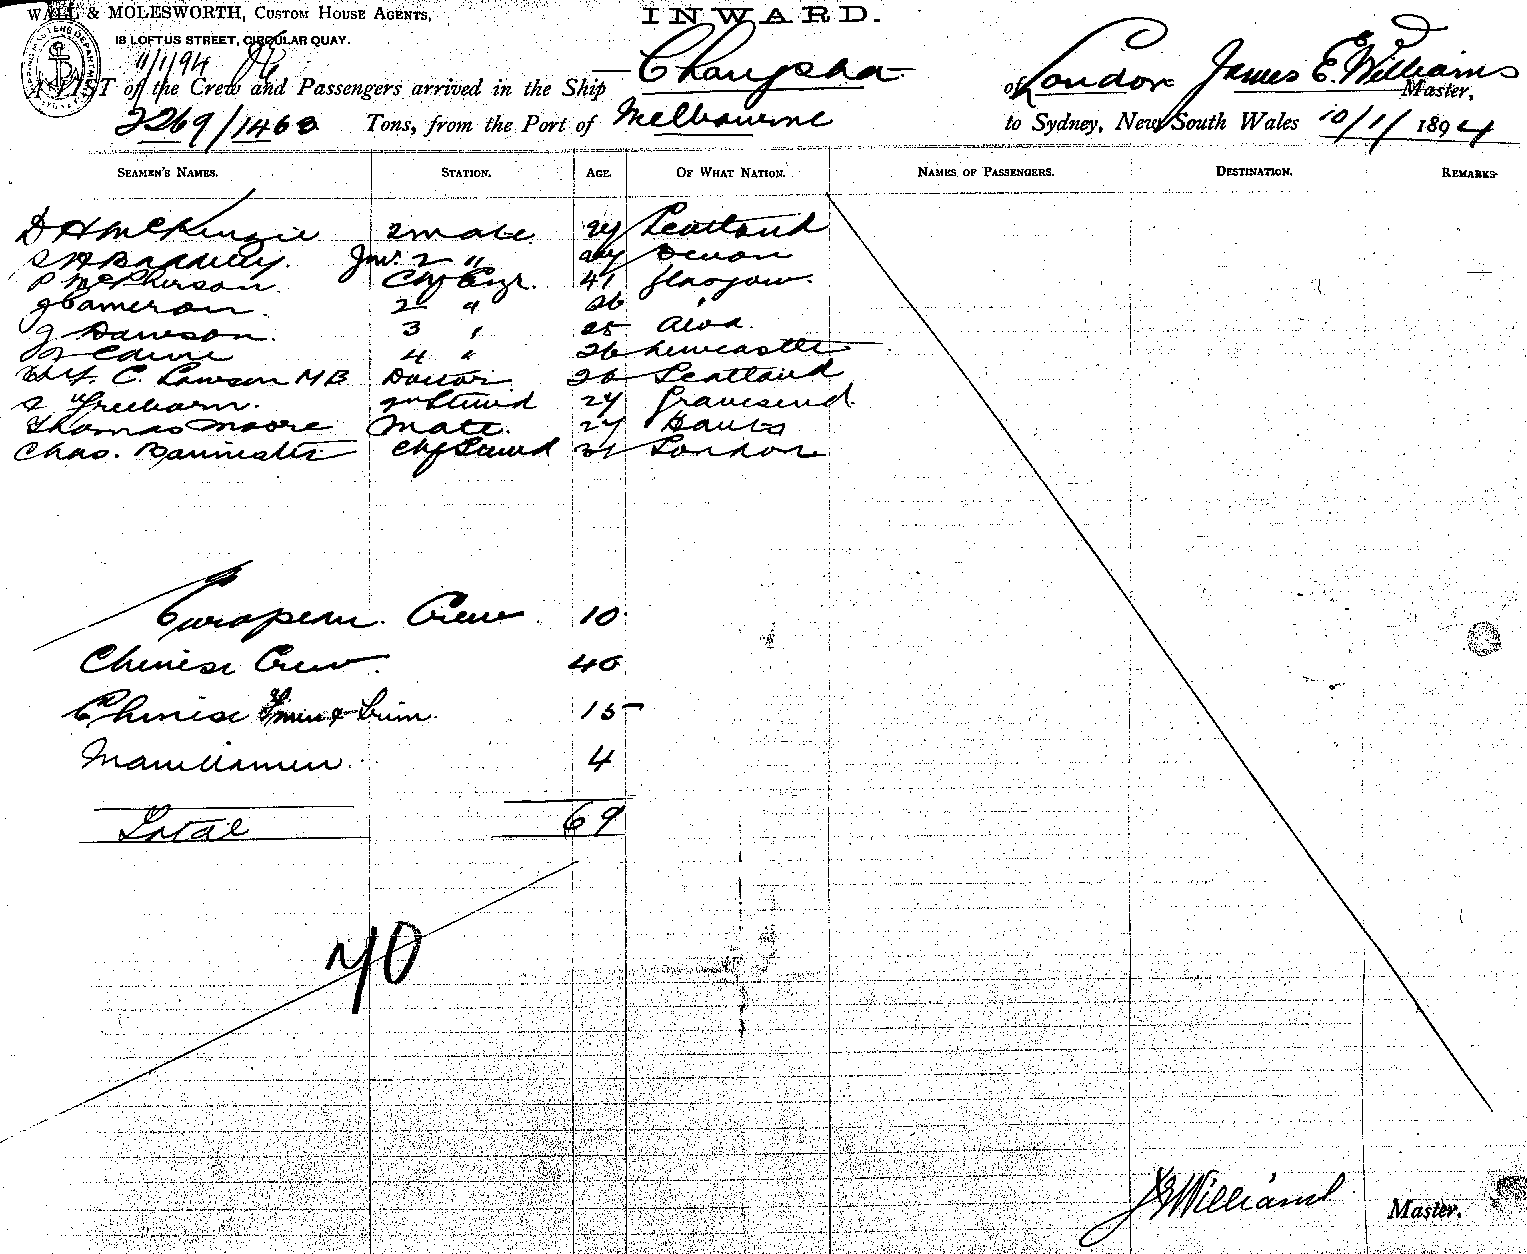 WALL & MOLESWORTH, CUSTOM HOUSE AGENTS,
18 LOFTUS STREET, CIRCULAR QUAY.
11/1/94
INWARD.
A LIST of the Crew and Passengers arrived in the Ship Changsha of London James E. Williams Master,
2269/1463 Tons, from the Port of Melbourne to Sydney, New South Wales 10/1/1894
SEAMEN'S NAMES. STATION. AGE. OF WHAT NATION. NAMES OF PASSENGERS. DESTINATION. REMARKS
D H McKenzie 2 mate 27 Scotland
Junr. 2 " Devon
P McPherson Chf Engr. 41 Glasgow
J Cameron 2 " 26 "
J Dawson 3 " 25 Aloa
4 " 26 Newcastle
C. Lawson MB Doctor 26 Scotland
Freeborn 2nd Stewd 24 Gravesend
Thomas Moore Mate 27 Hants
Chas. Bannister Chf Stewd 31 London
European Crew 10
Chinese Crew 40
Chinese Firemen & Trim. 15
Manillamen 4
Total 69
70
JEWilliams Master.